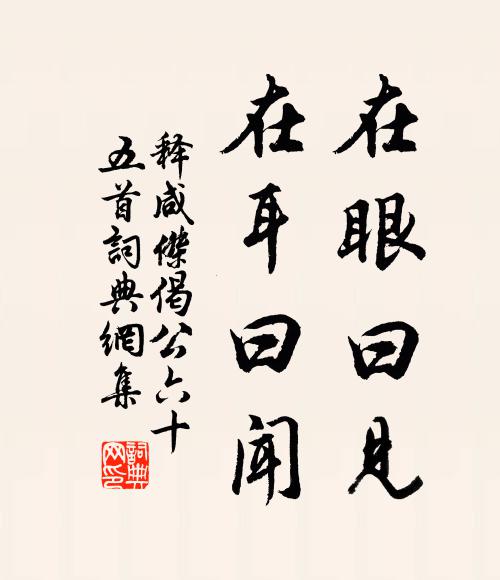 在眼曰見
在耳曰聞
释咸傑偈公六十
五首詞典網集
詞典网印